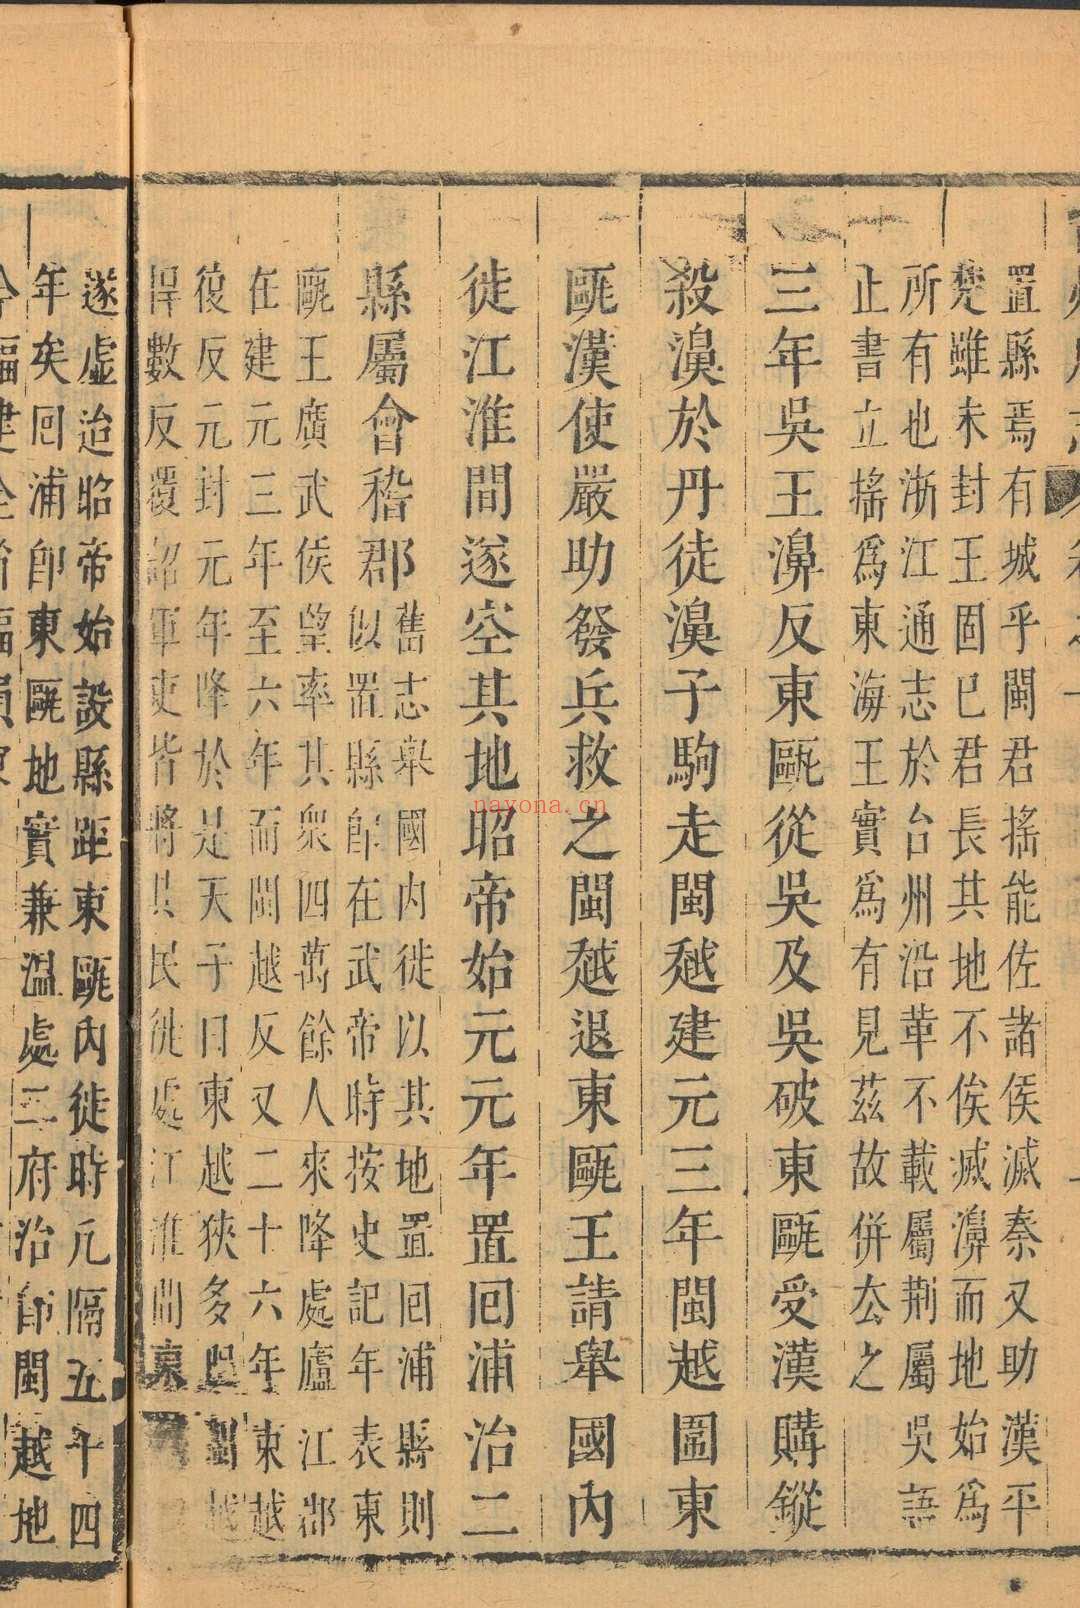 置縣焉有城乎閩君搖能佐諸侯滅秦又助漢平
楚雖未封王固已君長其地不俟滅濞而地始爲
所有也浙江通志於台州沿革不載屬荆屬吳語
止書立搖爲東海王實爲有見茲故併厺之
三年吳王濞反東甌從吳及吳破東甌受漢購鏦
殺濞於丹徒濞子駒走閩越建元三年閩越圍東
甌漢使嚴助發兵救之閩越退東甌王請舉國內
徙江淮間遂空其地昭帝始元元年置回浦治二
縣屬會稽郡
舊志舉國内徙以其地置回浦縣則
似置縣卽在武帝時按史記年表東
甌王廣武侯望率其衆四萬餘人來降處廬江郡
在建元三年至六年而閩越反又二十六年東越
復反元封元年降於是天子曰東越狹多阻閩越
悍數反覆詔軍吏皆將其民徙處江淮間東
遂虛迨昭帝始設縣距東甌内徙時凡隔五十四
年矣回浦卽東甌地實兼溫處二府治卽閩越地
nayona.cn